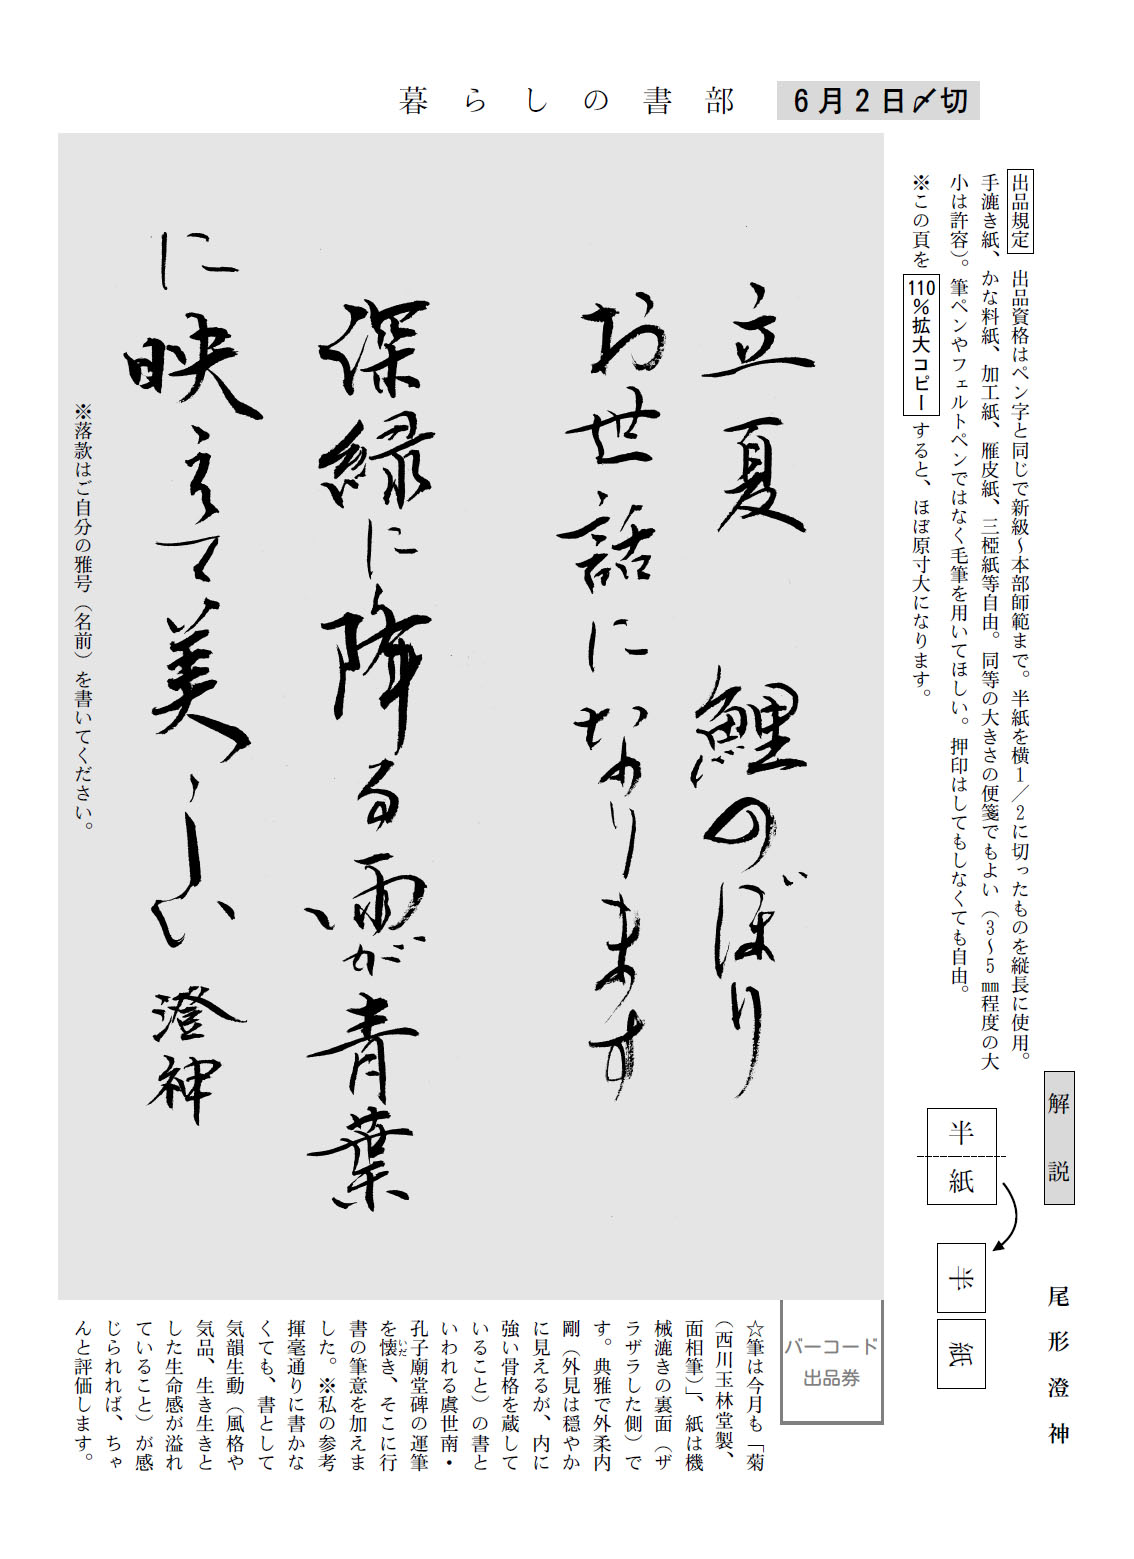 暮らしの書部
6月2日〆切
出品規定 出品資格はペン字と同じで新級～本部師範まで。半紙を横1／2に切ったものを縦長に使用。
手漉き紙、かな料紙、加工紙、雁皮紙、三椏紙等自由。同等の大きさの便箋でもよい（3～5㎜程度の大
小は許容）。筆ペンやフェルトペンではなく毛筆を用いてほしい。押印はしてもしなくても自由。
※この頁を110%拡大コピーすると、ほぼ原寸大になります。
解説
尾形澄神
半紙
半紙
立夏 鯉のぼり
お世話になります
深緑に降る雨が青葉
に映えて美しい 澄神
※落款はご自分の雅号（名前）を書いてください。
バーコード
出品券
☆筆は今月も「菊
（西川玉林堂製、
面相筆）」、紙は機
械漉きの裏面（ザ
ラザラした側）で
す。典雅で外柔内
剛（外見は穏やか
に見えるが、内に
強い骨格を蔵して
いること）の書と
いわれる虞世南・
孔子廟堂碑の運筆
を懐いだき、そこに行
書の筆意を加えま
した。※私の参考
揮毫通りに書かな
くても、書として
気韻生動（風格や
気品、生き生きと
した生命感が溢れ
ていること）が感
じられれば、ちゃ
んと評価します。